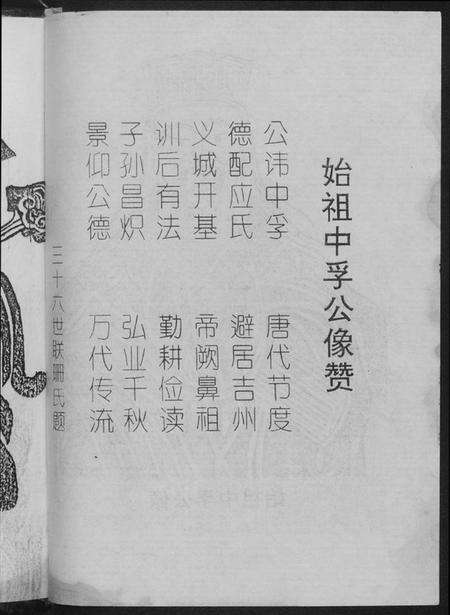 始祖中孚公像赞
公讳中孚 唐代节度
德配应氏 避居吉州
义城开基 帝阙鼻祖
训后有法 勤耕俭读
子孙昌炽 弘业千秋
景仰公德 万代传流
三十六世朕珊氏题